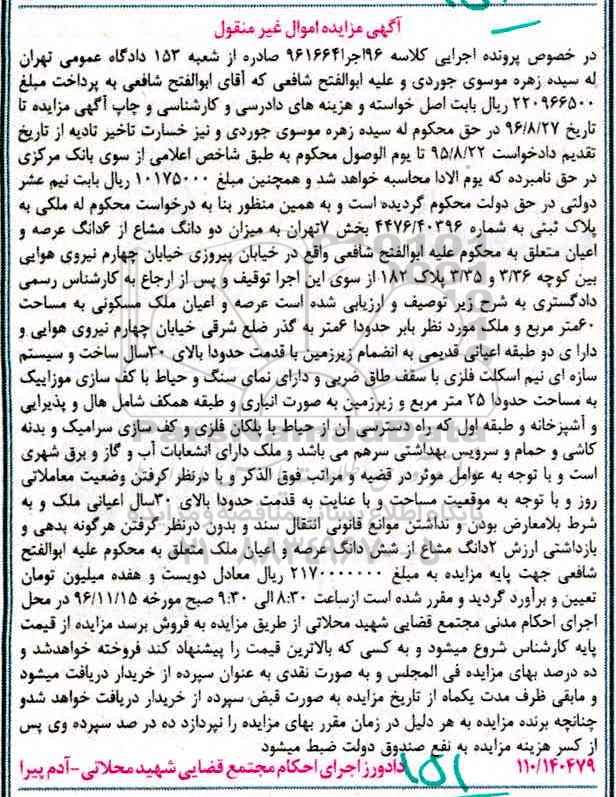 آگهی مزایده اموال غیر منقول
در خصوص پرونده اجرایی کلاسه ۹۶اجرا۹۶۱۶۶۴ صادره از شعبه ۱۵۳ دادگاه عمومی تهران
له سیده زهره موسوی جوردی و علیه ابوالفتح شافعی که آقای ابوالفتح شافعی به پرداخت مبلغ
۲۲۰۹۶۶۵۰۰ ریال بابت اصل خواسته و هزینه های دادرسی و کارشناسی و چاپ آگهی مزایده تا
تاریخ ۹۶/۸/۲۷ در حق محکوم له سیده زهره موسوی جوردی و نیز خسارت تاخیر تادیه از تاریخ
تقدیم دادخواست ۹۵/۸/۲۲ تا یوم الوصول محکوم به طبق شاخص اعلامی از سوی بانک مرکزی
در حق نامبرده که یوم الادا محاسبه خواهد شد و همچنین مبلغ ۱۰۱۷۵۰۰۰ ریال بابت نیم عشر
دولتی در حق دولت محکوم گردیده است و به همین منظور بنا به درخواست محکوم له ملکی به
پلاک ثبتی به شماره ۴۴۷۶/۴۰۳۹۶ بخش ۷تهران به میزان دو دانگ مشاع از ۶دانگ عرصه و
اعیان متعلق به محکوم علیه ابوالفتح شافعی واقع در خیابان پیروزی خیابان چهارم نیروی هوایی
بین کوچه ۳/۳۶ و ۳/۳۵ پلاک ۱۸۲ از سوی این اجرا توقیف و پس از ارجاع به کارشناس رسمی
دادگستری به شرح زیر توصیف و ارزیابی شده است عرصه و اعیان ملک مسکونی به مساحت
۶۰متر مربع و ملک مورد نظر بابر حدودا ۶متر به گذر ضلع شرقی خیابان چهارم نیروی هوایی و
دارا ی دو طبقه اعیانی قدیمی به انضمام زیرزمین با قدمت حدودا بالای ۳۰سال ساخت و سیستم
سازه ای نیم اسکلت فلزی با سقف طاق ضربی و دارای نمای سنگ و حیاط با کف سازی موزاییک
به مساحت حدودا ۲۵ متر مربع و زیرزمین به صورت انباری و طبقه همکف شامل هال و پذیرایی
و آشپزخانه و طبقه اول که راه دسترسی آن از حیاط با پلکان فلزی و کف سازی سرامیک و بدنه
کاشی و حمام و سرویس بهداشتی سرهم می باشد و ملک دارای انشعابات آب و گاز و برق شهری
است و با توجه به عوامل موثر در قضیه و مراتب فوق الذکر و با درنظر گرفتن وضعیت معاملاتی
روز و با توجه به موقعیت مساحت و با عنایت به قدمت حدودا بالای ۳۰سال اعیانی ملک و به
شرط بلامعارض بودن و نداشتن موانع قانونی انتقال سند و بدون درنظر گرفتن هرگونه بدهی و
بازداشتی ارزش ۲دانگ مشاع از شش دانگ عرصه و اعیان ملک متعلق به محکوم علیه ابوالفتح
شافعی جهت پایه مزایده به مبلغ ۲۱۷۰۰۰۰۰۰۰ ریال معادل دویست و هفده میلیون تومان
تعیین و برآورد گردید و مقرر شده است ازساعت ۸:۳۰ الی ۹:۳۰ صبح مورخه ۹۶/۱۱/۱۵ در محل
اجرای احکام مدنی مجتمع قضایی شهید محلاتی از طریق مزایده به فروش برسد مزایده از قیمت
پایه کارشناس شروع میشود و به کسی که بالاترین قیمت را پیشنهاد کند فروخته خواهدشد و
ده درصد بهای مزایده فی المجلس و به صورت نقدی به عنوان سپرده از خریدار دریافت میشود
و مابقی ظرف مدت یکماه از تاریخ مزایده به صورت قبض سپرده از خریدار دریافت خواهد شدو
چنانچه برنده مزایده به هر دلیل در زمان مقرر بهای مزایده را نپردازد ده در صد سپرده وی پس
از کسر هزینه مزایده به نفع صندوق دولت ضبط میشود
۱۱۰/۱۴۰۴۷۹ دادورز اجرای احکام مجتمع قضایی شهید محلاتی -آدم پیرا
ParsNamadData
پایگاه اطلاع رسانی مناقصه و مزایده
۰۲۱-۸۸۳۴۹۶۷۰-۵